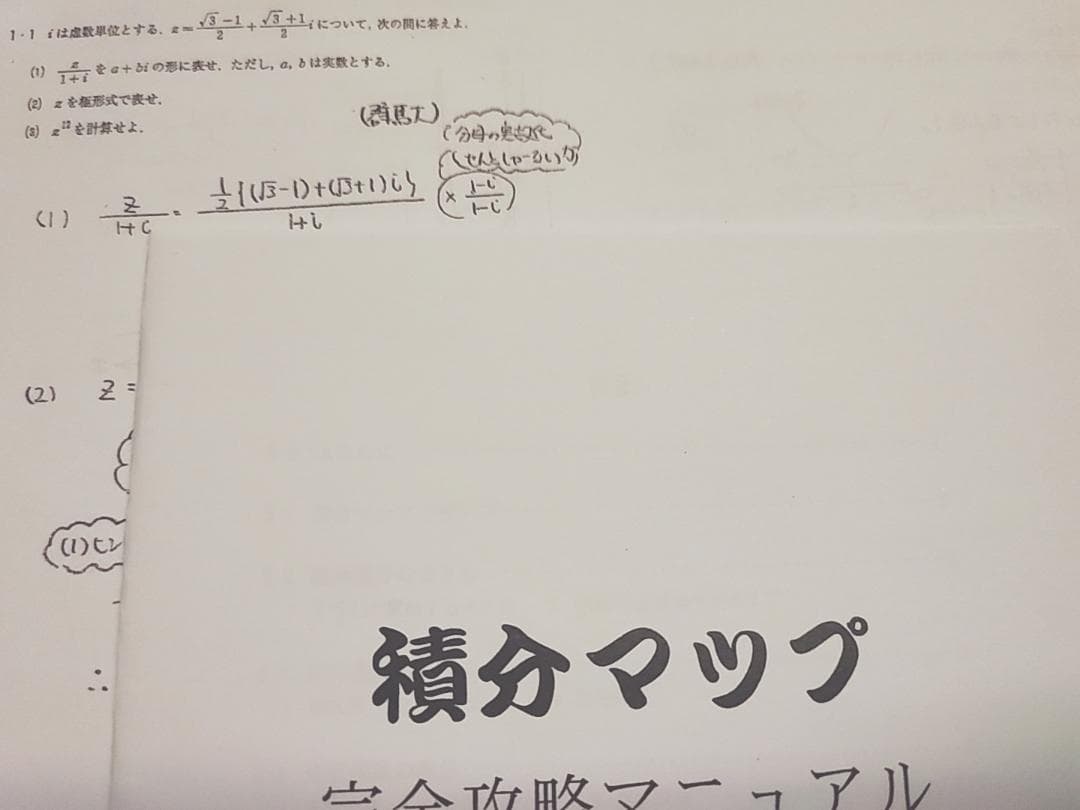 1・1 iは虚数単位とする. z=\frac{√3-1}{2}+\frac{√3+1}{2}i について, 次の問に答えよ.
(1) \frac{z}{1+i} を a+bi の形に表せ. ただし, a, b は実数とする.
(2) z を極形式で表せ.
(3) z^{12} を計算せよ.
(群馬大)
分母の実数化
(1) \frac{z}{1+i} = \frac{\frac{1}{2}{(√3-1)+(√3+1)i}}{1+i} × \frac{1-i}{1-i}
(2) z =
(1)ヒン
∴
積分マップ
完全攻略マニュアル